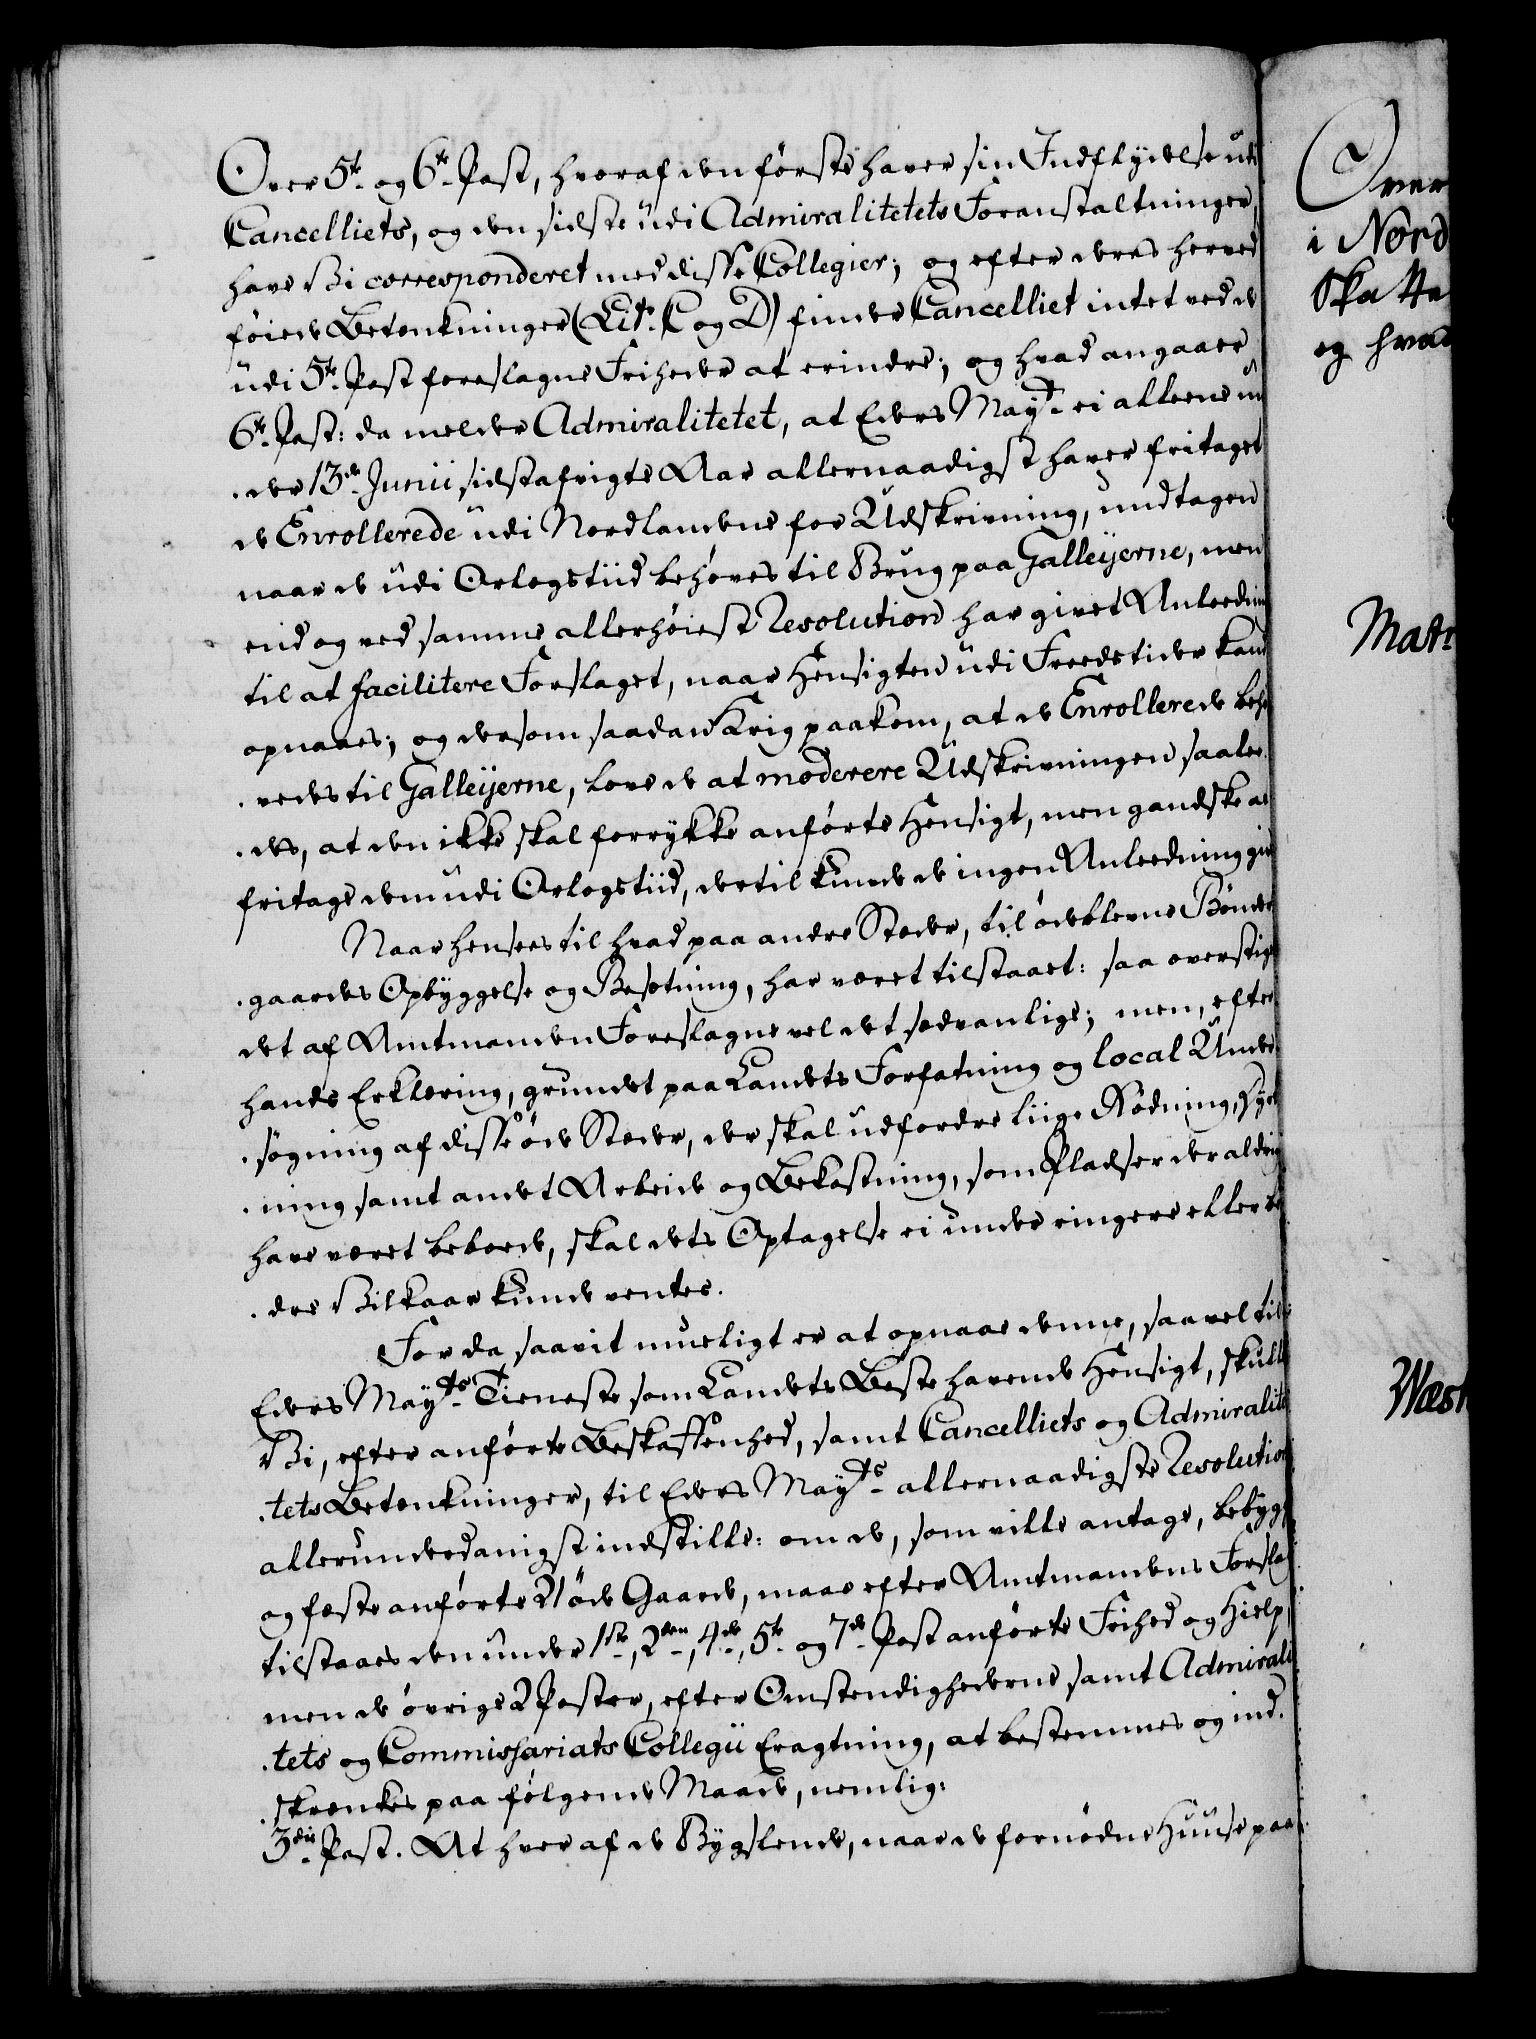 Over 5te og 6te Post, hvoraf den første haver sin Indflydelse udi
Cancelliets, og den sidste udi Admiralitetets Foranstaltninger,
have Vi corresponderet med disse Collegier; og efter deres herved
føiede Betenkninger (Litr. C og D) finder Cancelliet intet ved de
udi 5te Post foreslagne Friheder at erindre; og hvad angaaer
6te Post: da melder Admiralitetet, at Eders Mayt ei alleene un
der 13de Junii sidstafvigte Aar allernaadigst haver fritaget
de Enrollerede udi Nordlandene for Udskrivning, undtagen
naar de udi Orlogstiid behøves til Brug paa Galleyerne, men
end og ved samme allerhøieste Resolution har givet Anleedning
til at facilitere Forslaget, naar Hensigten udi Freedstider kand
opnaaes; og dersom saadan Krig paakom, at de Enrollerede behø
vedes til Galleyerne, love de at moderere Udskrivningen saale
des, at den ikke skal forrykke anførte Hensigt, men gandske at
fritage dem udi Orlogstiid, dertil kunde de ingen Anleedning give
Naar hensees til hvad paa andre Steder, til ødeblevne Bønder
gaardes Opbyggelse og Besetning, har været tilstaaet: saa overstiger
det af Amtmanden Foreslagne vel det sædvanlige; men, efter
hands Erklæring, grundet paa Landets Forfatning og local Under
søgning af disse øde Steder, der skal udfordre liige Rødning, Byg
ning samt andet Arbeide og Bekostning, som Pladser der aldrig
have været beboede, skal dets Optagelse ei under ringere eller
dre Vilkaar kunde ventes.
For da saavit mueligt er at opnaae denne, saavel til
Eders Mayts Tieneste som Landets Beste havende Hensigt, skulle
Vi, efter anførte Beskaffenhed, samt Cancelliets og Admiralite
tets Betenkninger, til Eders Mayts allernaadigste Resolution
allerunderdanigst indstille: om de, som ville antage, bebygge
og fæste anførte 21 øde Gaarde, maae efter Amtmandens Forslag
tilstaaes den under 1ste, 2den, 4de, 5te og 7de Post anførte Frihed og Hielp,
men de øvrige 2 Poster, efter Omstendighederne samt Admirali
tets og Commissariats Collegii Eragtning, at bestemmes og ind
skrenkes paa følgende Maade, nemlig:
3die Post. At hver af de Bygslende, naar de fornødne Huuse paa
Over
i Nord
Skatte
og hvad
Matr
Wæst